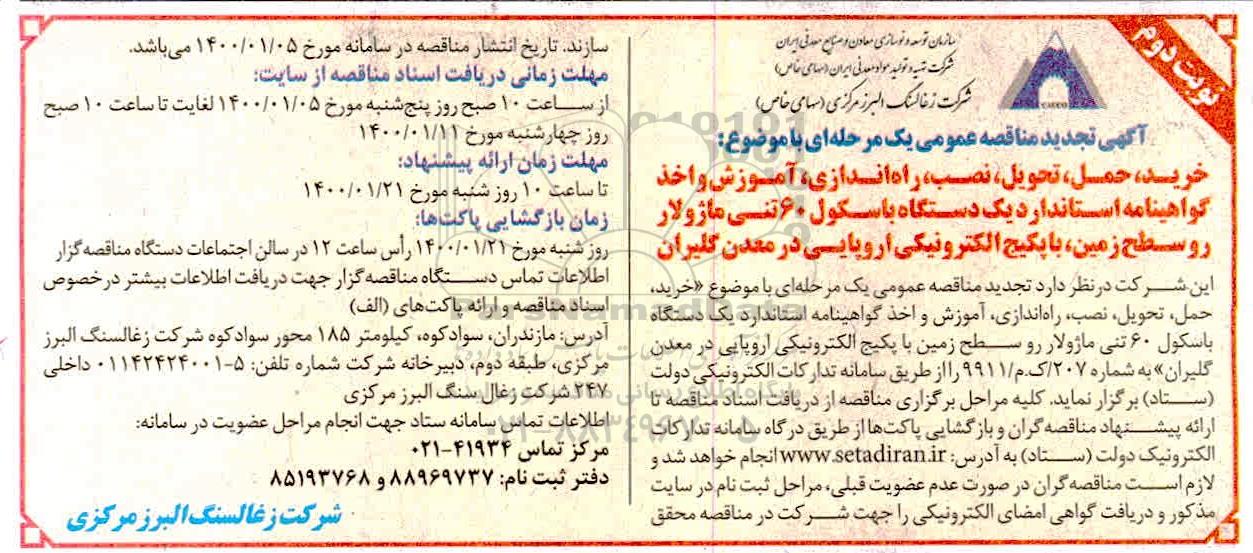 نوبت دوم
سازمان توسعه و نوسازی معادن و صنایع معدنی ایران
شرکت تهیه و تولید مواد معدنی ایران (سهامی خاص)
شرکت زغالسنگ البرز مرکزی (سهامی خاص)
آگهی تجدید مناقصه عمومی یک مرحله‌ای با موضوع:
خرید، حمل، تحویل، نصب، راه‌اندازی، آموزش و اخذ
گواهینامه استاندارد یک دستگاه باسکول ۶۰ تنی ماژولار
رو سطح زمین، با پکیج الکترونیکی اروپایی در معدن گلیران
این شرکت درنظر دارد تجدید مناقصه عمومی یک مرحله‌ای با موضوع «خرید،
حمل، تحویل، نصب، راه‌اندازی، آموزش و اخذ گواهینامه استاندارد یک دستگاه
باسکول ۶۰ تنی ماژولار رو سطح زمین با پکیج الکترونیکی اروپایی در معدن
گلیران» به شماره ۲۰۷/ک.م/۹۹۱۱ را از طریق سامانه تدارکات الکترونیکی دولت
(ستاد) برگزار نماید. کلیه مراحل برگزاری مناقصه از دریافت اسناد مناقصه تا
ارائه پیشنهاد مناقصه‌گران و بازگشایی پاکت‌ها از طریق درگاه سامانه تدارکات
الکترونیک دولت (ستاد) به آدرس: www.setadiran.ir انجام خواهد شد و
لازم است مناقصه‌گران در صورت عدم عضویت قبلی، مراحل ثبت نام در سایت
مذکور و دریافت گواهی امضای الکترونیکی را جهت شرکت در مناقصه محقق
سازند. تاریخ انتشار مناقصه در سامانه مورخ ۱۴۰۰/۰۱/۰۵ می‌باشد.
مهلت زمانی دریافت اسناد مناقصه از سایت:
از ساعت ۱۰ صبح روز پنج‌شنبه مورخ ۱۴۰۰/۰۱/۰۵ لغایت تا ساعت ۱۰ صبح
روز چهارشنبه مورخ ۱۴۰۰/۰۱/۱۱
مهلت زمان ارائه پیشنهاد:
تا ساعت ۱۰ روز شنبه مورخ ۱۴۰۰/۰۱/۲۱
زمان بازگشایی پاکت‌ها:
روز شنبه مورخ ۱۴۰۰/۰۱/۲۱ رأس ساعت ۱۲ در سالن اجتماعات دستگاه مناقصه‌گزار
اطلاعات تماس دستگاه مناقصه‌گزار جهت دریافت اطلاعات بیشتر درخصوص
اسناد مناقصه و ارائه پاکت‌های (الف)
آدرس: مازندران، سوادکوه، کیلومتر ۱۸۵ محور سوادکوه شرکت زغالسنگ البرز
مرکزی، طبقه دوم، دبیرخانه شرکت شماره تلفن: ۵-۰۱۱۴۲۴۲۴۰۰۱ داخلی
۲۴۷ شرکت زغال سنگ البرز مرکزی
اطلاعات تماس سامانه ستاد جهت انجام مراحل عضویت در سامانه:
مرکز تماس ۴۱۹۳۴-۰۲۱
دفتر ثبت نام: ۸۸۹۶۹۷۳۷ و ۸۵۱۹۳۷۶۸
شرکت زغالسنگ البرز مرکزی